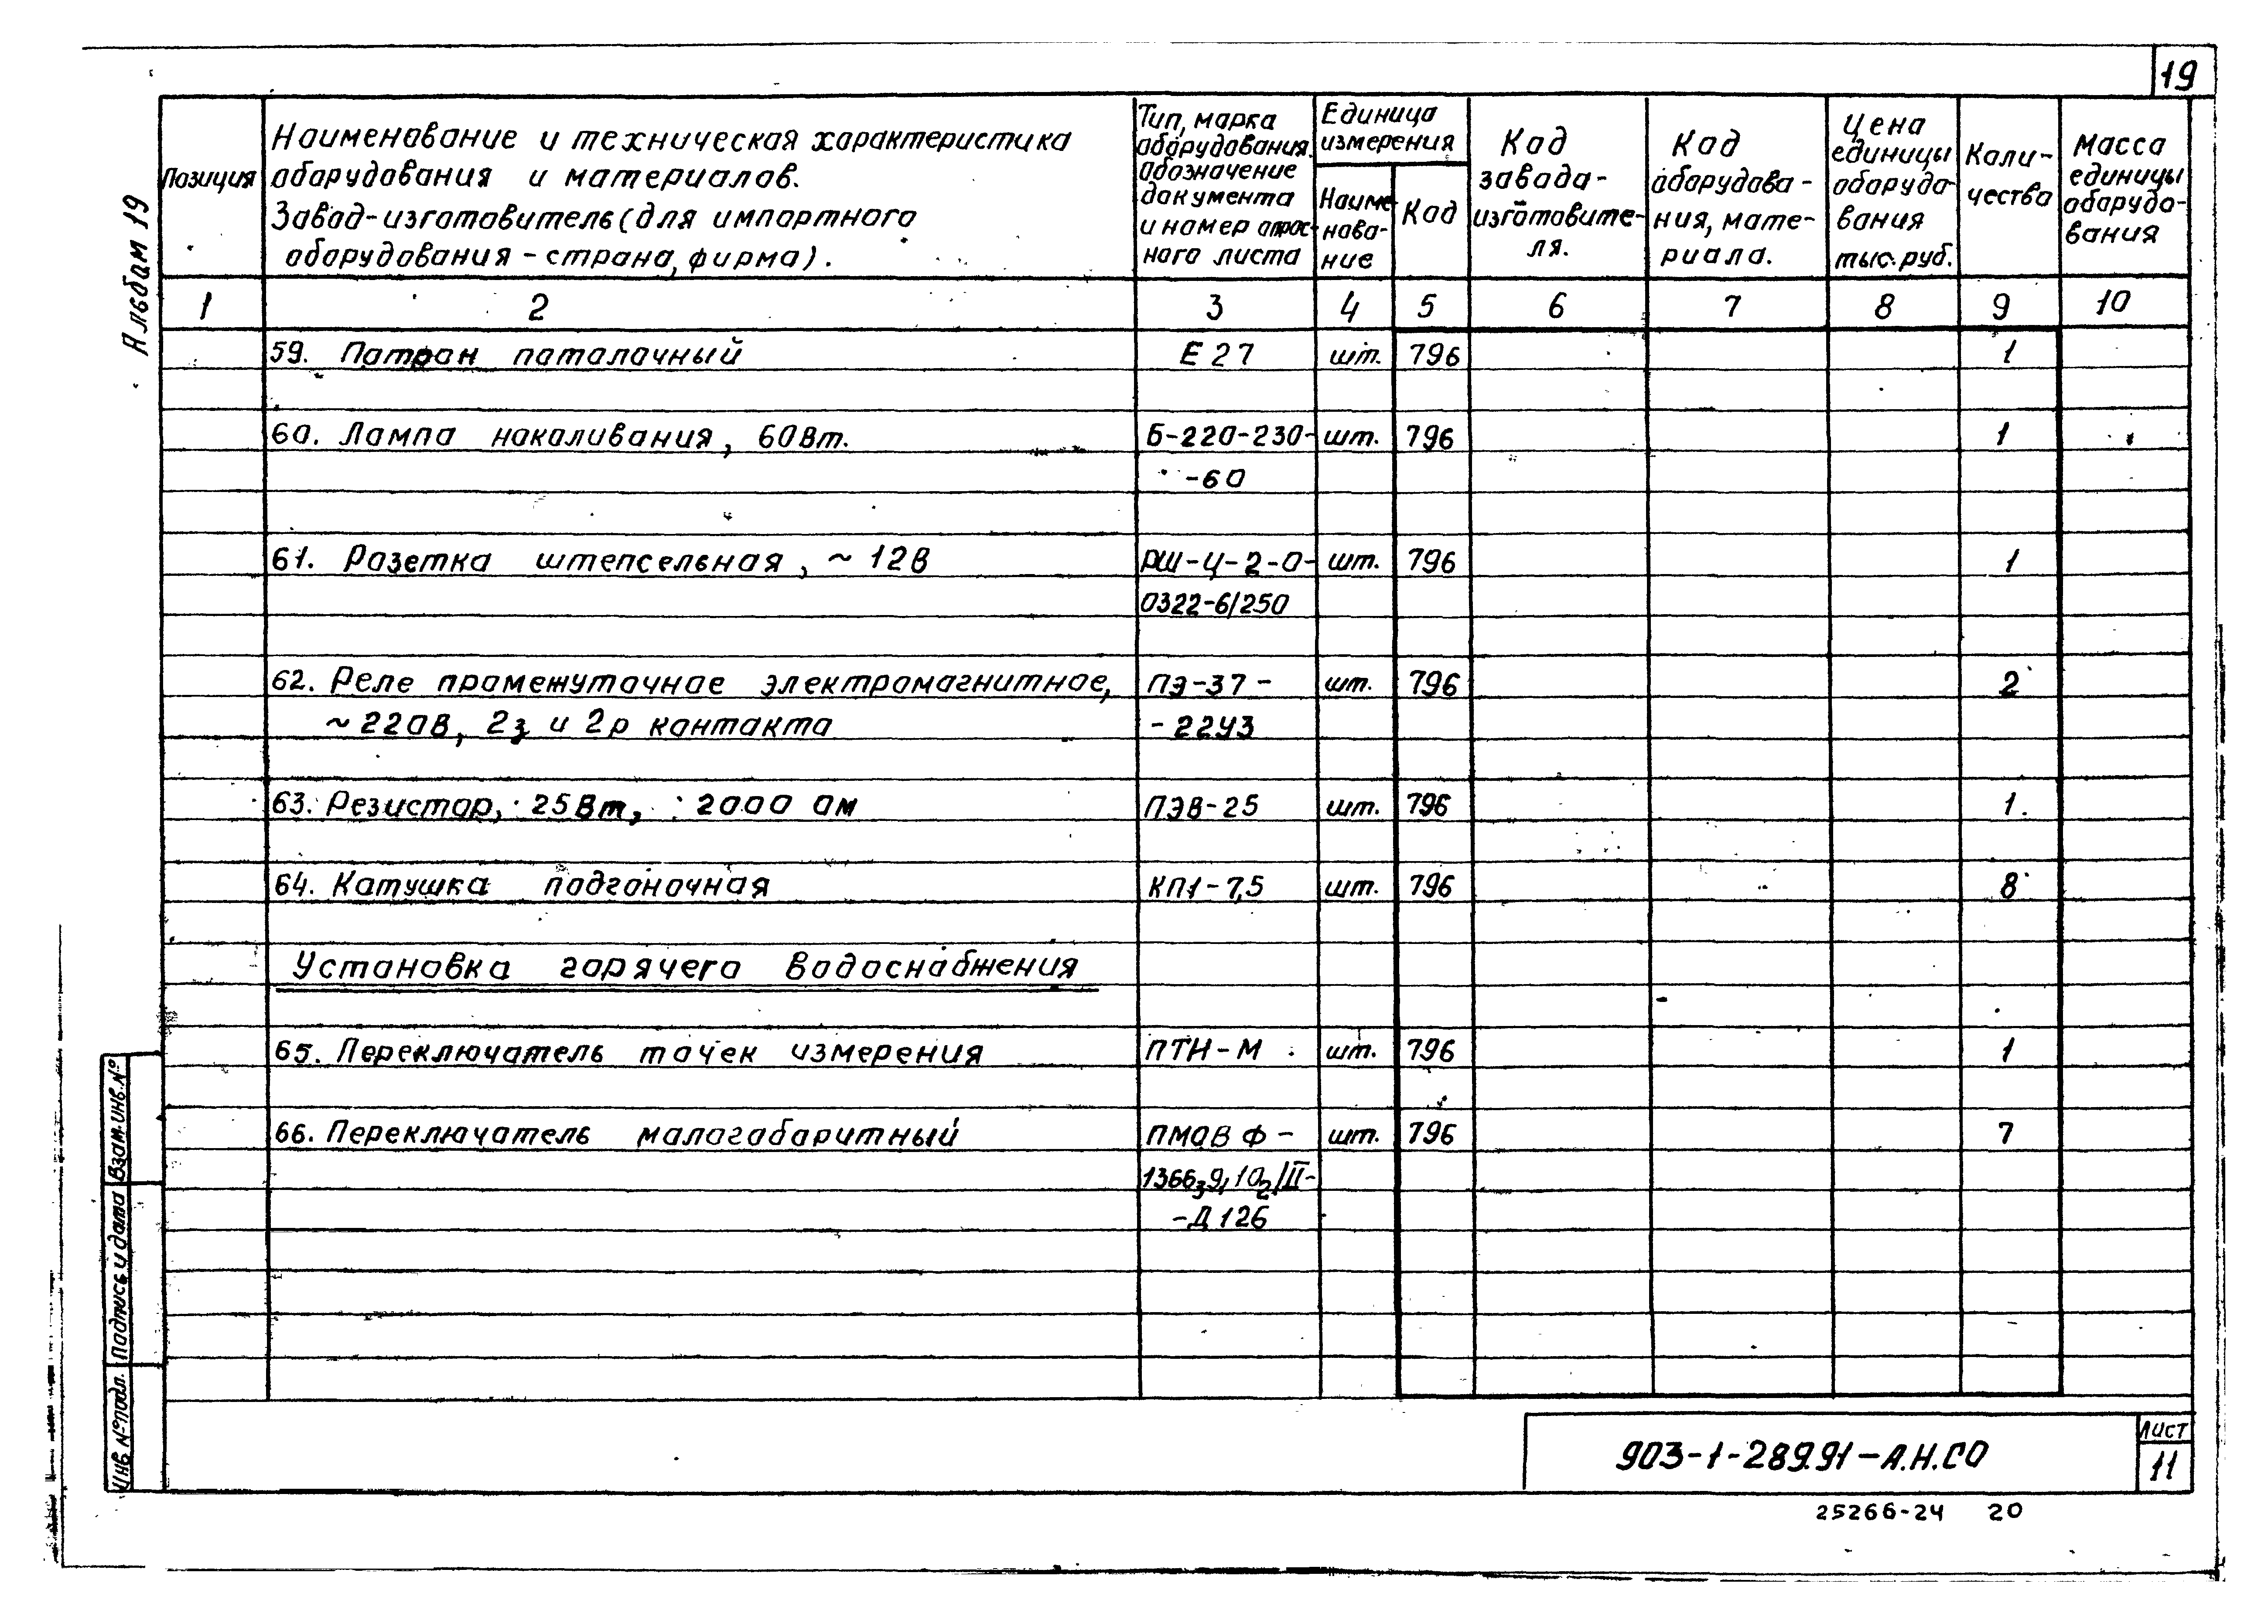 19
Альбом 19
Позиция
Наименование и техническая характеристика
оборудования и материалов.
Завод-изготовитель (для импортного
оборудования – страна, фирма).
Тип, марка
оборудования.
Обозначение
документа
и номер опрос-
ного листа
Единица
измерения
Наиме-
нова-
ние
Код
Код
завода-
изготовите-
ля.
Код
оборудова-
ния, мате-
риала.
Цена
единицы
оборудо-
вания
тыс. руб.
Коли-
чество
Масса
единицы
оборудо-
вания
1 2 3 4 5 6 7 8 9 10
59. Патрон потолочный Е27 шт. 796 1
60. Лампа накаливания, 60Вт. Б-220-230- шт. 796 1
-60
61. Розетка штепсельная, ~12В РШ-Ц-2-0- шт. 796 1
0322-6/250
62. Реле промежуточное электромагнитное, ПЭ-37- шт. 796 2
~220В, 2з и 2р контакта -22У3
63. Резистор, 25Вт, 2000 Ом ПЭВ-25 шт. 796 1.
64. Катушка подгоночная КП1-7,5 шт. 796 8
Установка горячего водоснабжения
65. Переключатель точек измерения ПТИ-М шт. 796 1
66. Переключатель малогабаритный ПМОВФ- шт. 796 7
1366₃9,10₂/II-
-Д126
Инв. № подл. Подпись и дата Взам. инв. №
903-1-289.91-А.Н.СО
Лист
11
25266-24 20